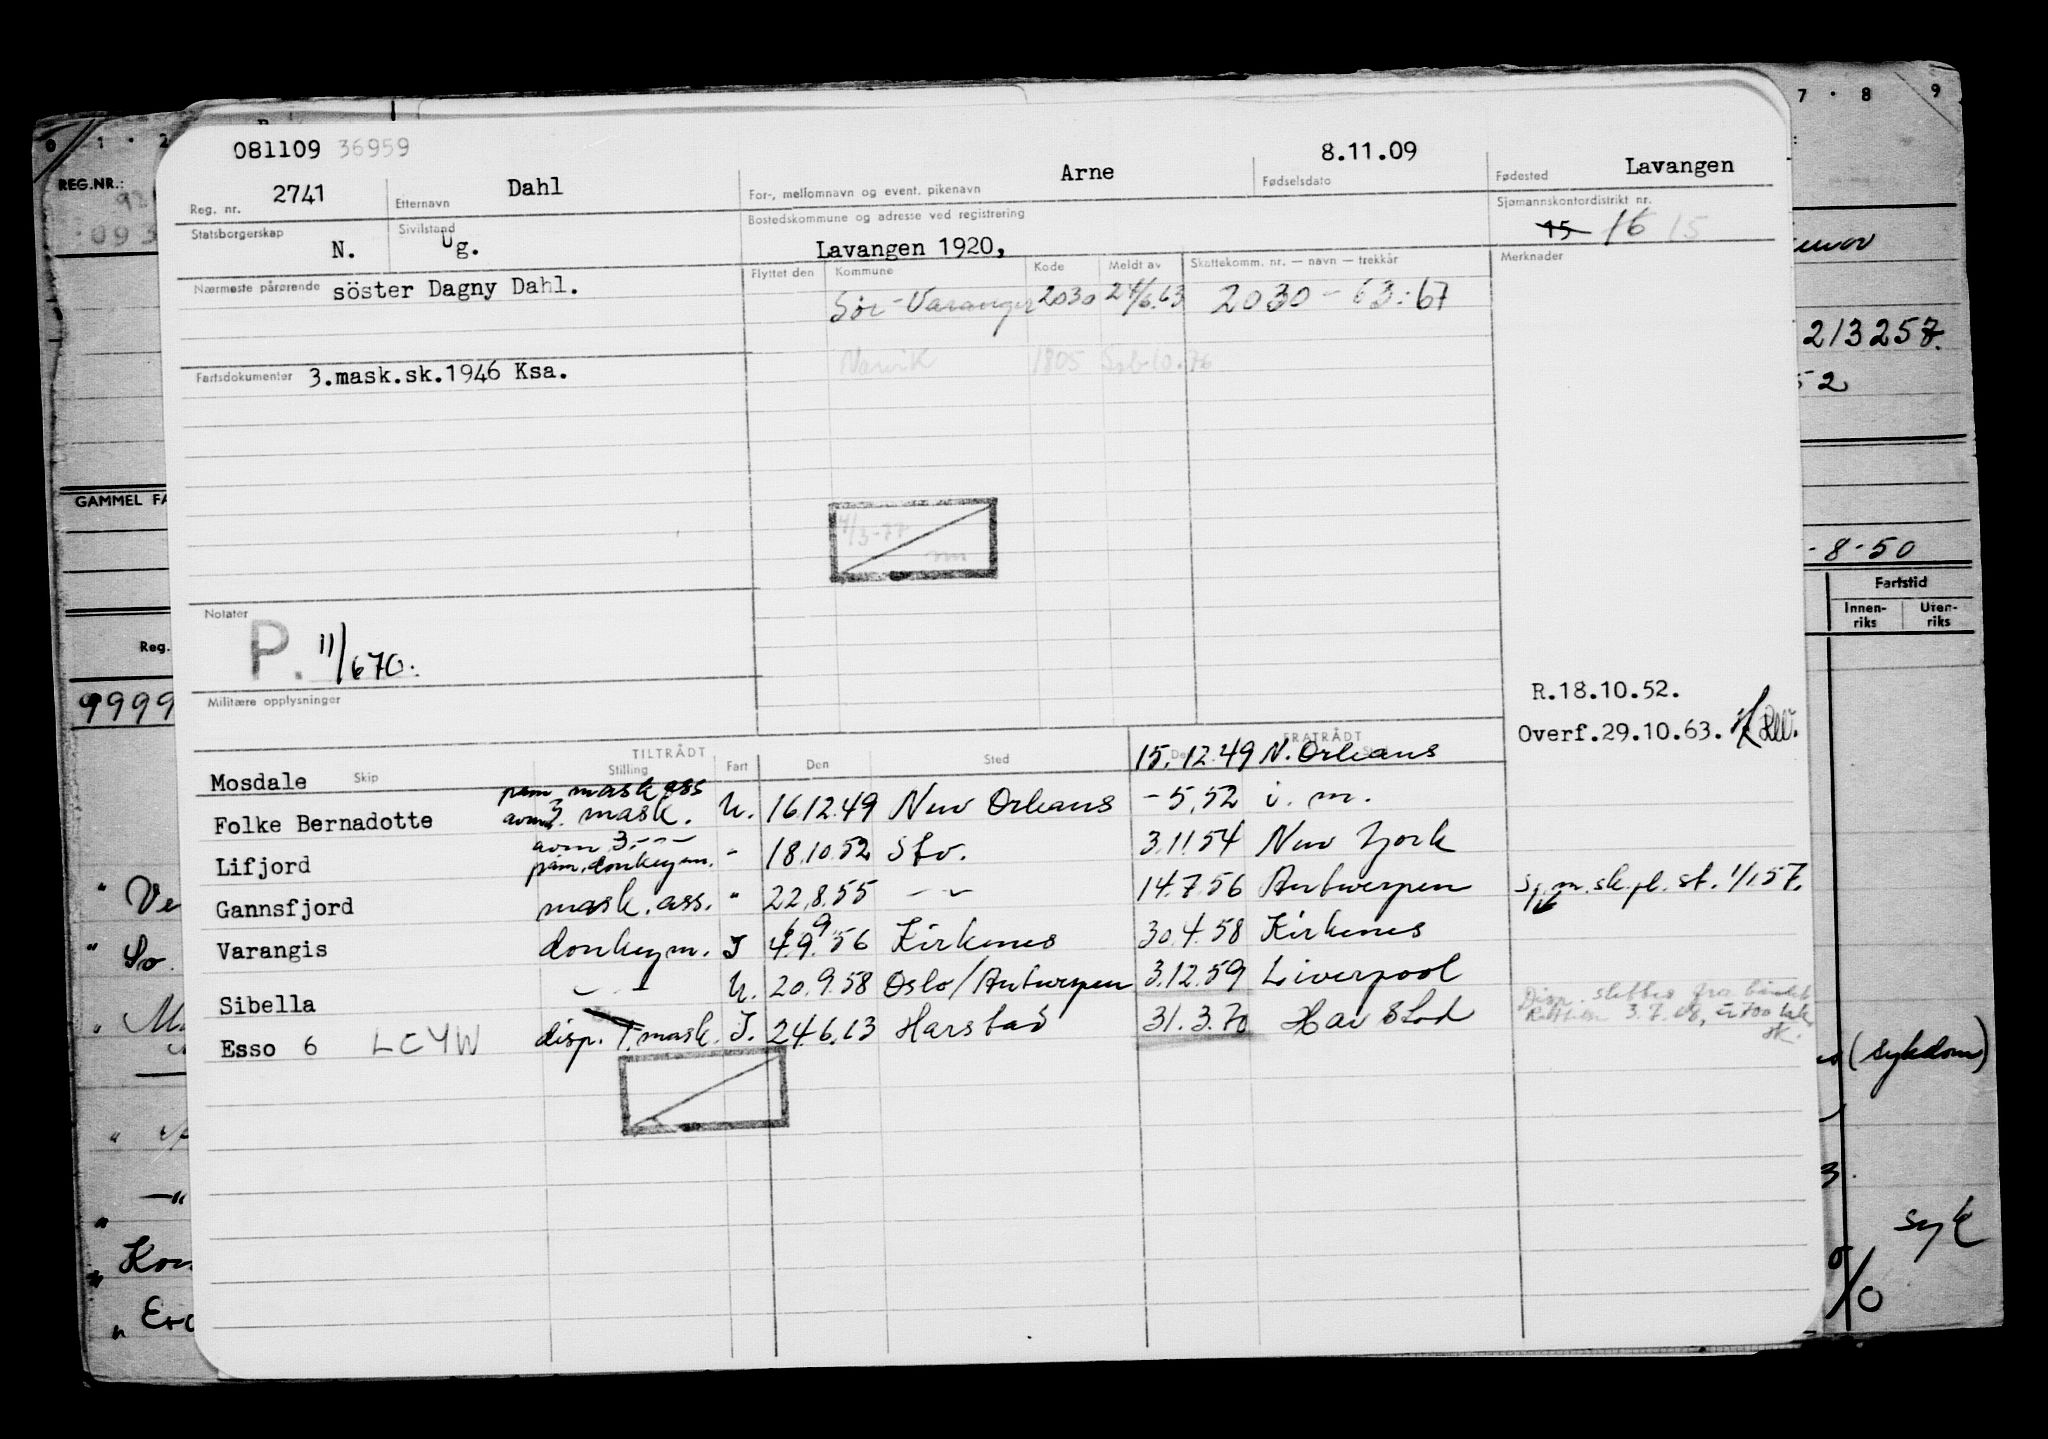 081109 36959
Reg. nr. 2741
Etternavn Dahl
For-, mellomnavn og event. pikenavn Arne
Fødselsdato 8.11.09
Fødested Lavangen
Statsborgerskap N.
Sivilstand Ug.
Bostedskommune og adresse ved registrering
Lavangen 1920,
Sjømannskontordistrikt nr.
15 16 15
Nærmeste pårørende söster Dagny Dahl.
Flyttet den Kommune Kode Meldt av Skattekomm. nr. — navn — trekkår
Merknader
Sør-Varanger 2030 24/6.63 2030 - 63:67
Narvik 1805
Fartsdokumenter 3.mask.sk.1946 Ksa.
Notater
P. 11/670.
Militære opplysninger
R.18.10.52.
Overf.29.10.63.
TILTRÅDT FRATRÅDT
Skip Stilling Fart Den Sted
Mosdale 15.12.49 N. Orleans
Folke Bernadotte påm mask ass avm 3. mask. U. 16.12.49 New Orleans -5.52 i. m.
Lifjord avm 3. --- påm. donkeym. - 18.10.52 Stv. 3.11.54 New York
Gannsfjord mask. ass. " 22.8.55 -"- 14.7.56 Antwerpen
Varangis donkeym. I 4.9.56 Kirkenes 30.4.58 Kirkenes
Sibella U. 20.9.58 Oslo/Antwerpen 3.12.59 Liverpool
Esso 6 LCYW disp. 1. mask. I. 24.6.63 Harstad 31.3.70
0 1 · 2
7 · 8 9
REG.NR.:
213257.
52
GAMMEL FA
-8-50
Fartstid
Innen-riks Uten-riks
Reg.
9999
(sykdom)
syk